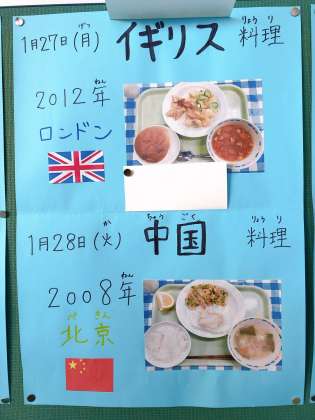 1月27日(月) イギリス 料理
げつ りょうり
2012年
ねん
ロンドン
1月28日(火) 中国 料理
か ちゅうごく りょうり
2008年
ねん
北京
ぺきん